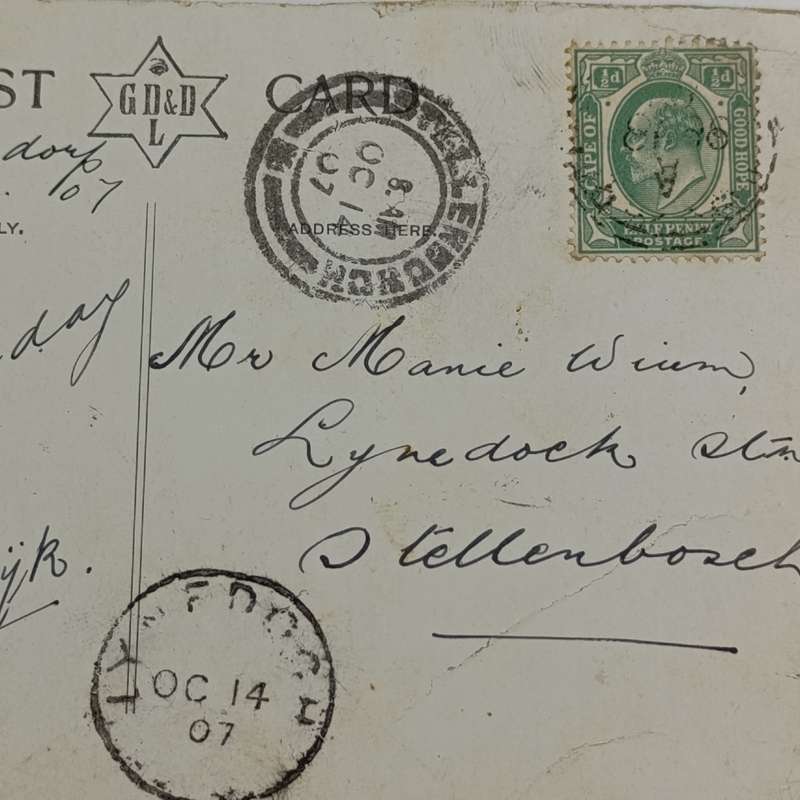 ST CARD
G D & D
L
dorp
07
LY.
ADDRESS HERE.
day
Mr Manie Wium,
Lynedock Stn
Stellenbosch
ijk.
OC 14
07
8. AM
LYNEDOCH
OC 14
07
½d ½d
CAPE OF GOOD HOPE
HALF PENNY
POSTAGE